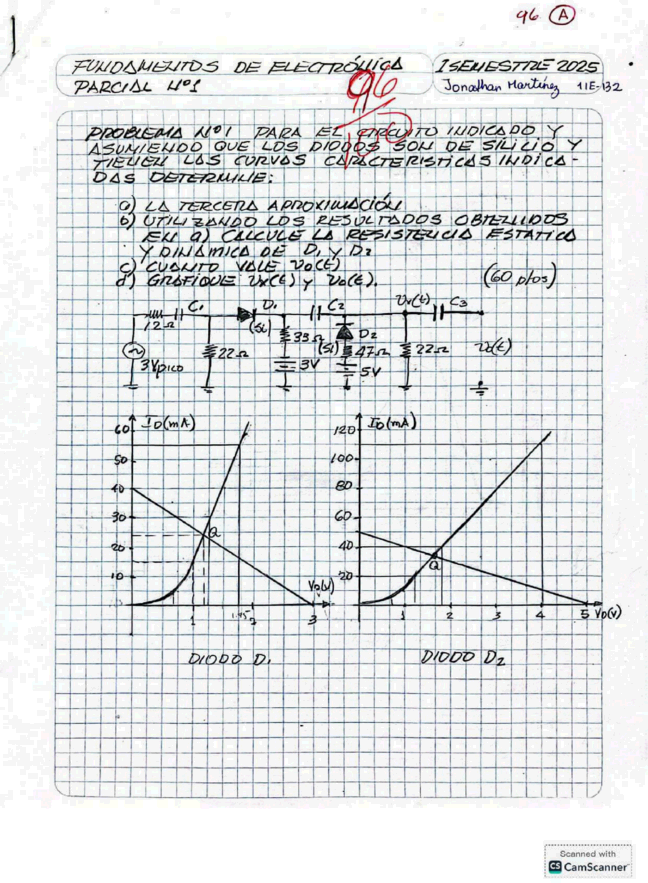 96 A
FUNDAMENTOS DE ELECTRÓNICA
I SEMESTRE 2025
PARCIAL Nº1
Jonathan Martínez 11E-132
96
PROBLEMA Nº1 PARA EL CIRCUITO INDICADO Y
ASUMIENDO QUE LOS DIODOS SON DE SILICIO Y
TIENEN LAS CURVAS CARACTERISTICAS INDICA-
DAS DETERMINE:
a) LA TERCERA APROXIMACIÓN
b) UTILIZANDO LOS RESULTADOS OBTENIDOS
EN a) CALCULE LA RESISTENCIA ESTATICA
Y DINÁMICA DE D1 Y D2
c) CUANTO VALE vo(t)
d) GRAFIQUE vx(t) y vo(t). (60 ptos)
C1 D1 C2 vx(t) C3
12Ω (Si) 33Ω (Si) D2
22Ω 47Ω 22Ω vo(t)
3Vpico 3V 5V
ID(mA) ID(mA)
60 120
50 100
40 80
30 60
20 Q 40
10 VD(V) Q 20
1 1.75 2 3 1 2 3 4 5 VD(V)
DIODO D1 DIODO D2
Scanned with
CS CamScanner